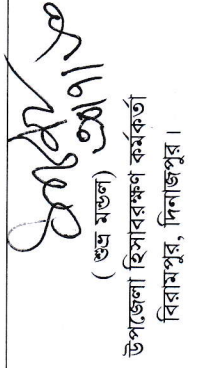 ( শুভ্র মন্ডল)
উপজেলা হিসাবরক্ষণ কর্মকর্তা
বিরামপুর, দিনাজপুর।